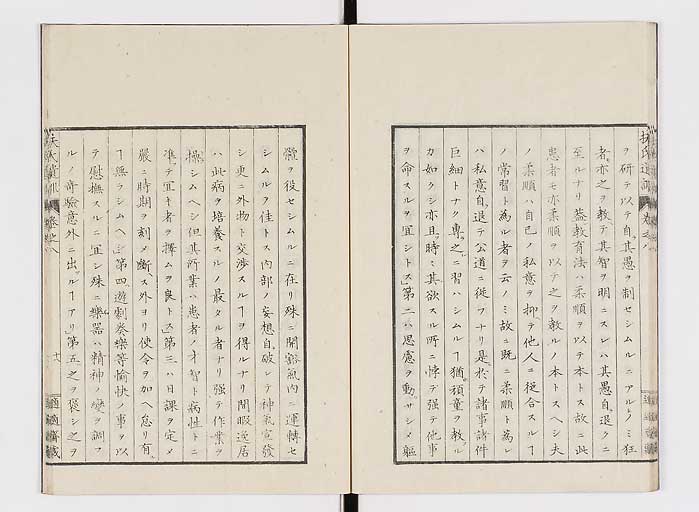 ヲ研テ以テ自其愚ヲ制セシムルニアルノミ狂
者亦之ヲ教テ其智ヲ明ニスレハ其愚自退クニ
至ルナリ蓋教育法ハ柔順ヲ以テ本トス故ニ此
患者モ亦柔順ヲ以テ之ヲ教ルノ本トスヘシ夫
ノ柔順ハ自己ノ私意ヲ抑テ他人ニ従合スルヿ
ノ常習ト為ル者ヲ云ノミ故ニ既ニ柔順ト為レ
ハ私意自退テ公道ニ従フナリ是ニ於テ諸事諸件
巨細トナク専之ニ習ハシムルヿ猶頑童ヲ教ル
カ如クシ亦且時ミ其欲スル所ニ悖テ强テ他事
ヲ命スルヲ宜シトス」第二ハ思慮ヲ動サシメ軀
體ヲ役セシムルニ在リ殊ニ開豁氣内ニ運轉セ
シムルヲ佳トス内部ノ妄想自破レテ神氣宣發
シ更ニ外物ト交渉スルヿヲ得ルナリ閒暇逸居
ハ此病ヲ培養スルノ最タル者ナリ强テ作業ヲ
操シムヘシ但其所業ハ患者ノ才智ト病性トニ
準テ宜キ者ヲ擇ムヲ良トス」第三ハ日課ヲ定メ
嚴ニ時期ヲ刻メ斷ス外ヨリ使令ヲ加ヘ怠リ有
ヿ無ラシムヘシ」第四遊劇奏樂等愉快ノ事ヲ以
テ慰撫スルニ宜シ殊ニ樂器ハ精神ノ變ヲ調フ
ルノ奇驗意外ニ出ルヿアリ」第五之ヲ褒シ之ヲ
扶氏遺訓
卷之
適適齋藏